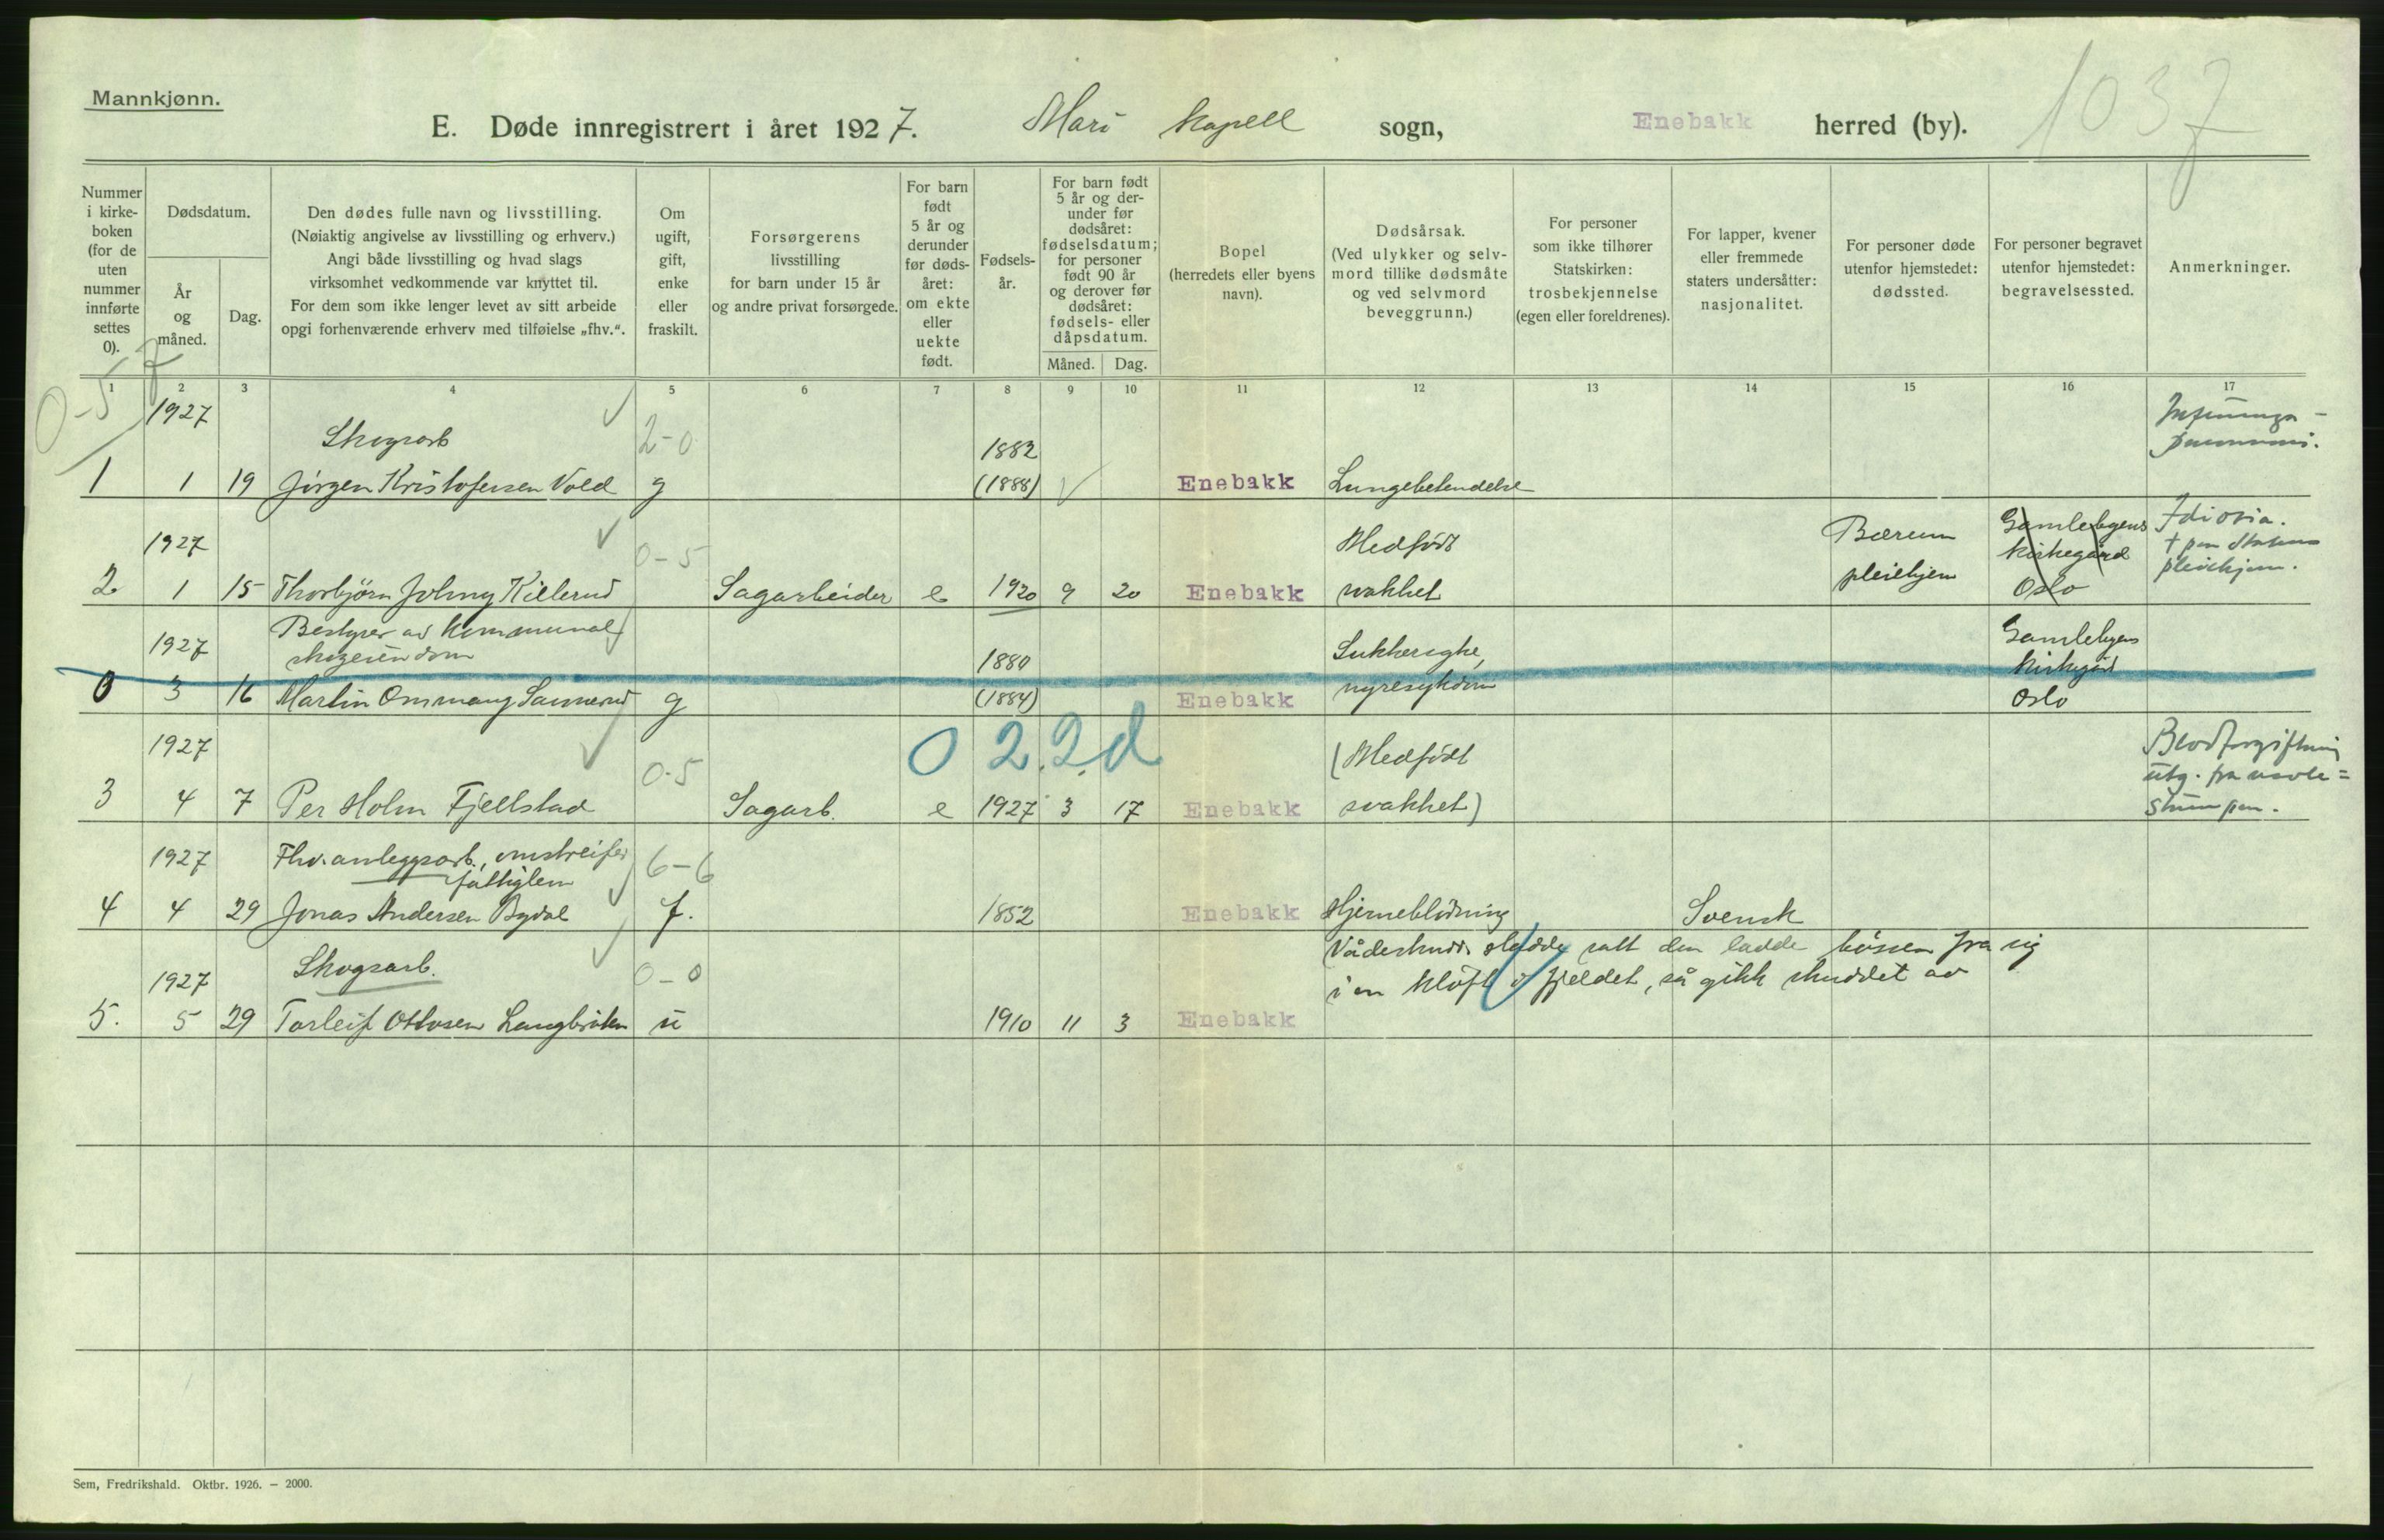 Mannkjønn.
E. Døde innregistrert i året 1927. Mari kapell sogn, Enebakk herred (by).
1037
Nummer i kirke-boken (for de uten nummer innførte settes 0).
Dødsdatum.
År og måned.
Dag.
Den dødes fulle navn og livsstilling.
(Nøiaktig angivelse av livsstilling og erhverv.)
Angi både livsstilling og hvad slags
virksomhet vedkommende var knyttet til.
For dem som ikke lenger levet av sitt arbeide
opgi forhenværende erhverv med tilføielse „fhv.“.
Om ugift, gift, enke eller fraskilt.
Forsørgerens
livsstilling
for barn under 15 år
og andre privat forsørgede.
For barn født 5 år og derunder før døds-året: om ekte eller uekte født.
Fødsels-år.
For barn født 5 år og der-under før dødsåret: fødselsdatum; for personer født 90 år og derover før dødsåret: fødsels- eller dåpsdatum.
Måned. Dag.
Bopel
(herredets eller byens
navn).
Dødsårsak.
(Ved ulykker og selv-
mord tillike dødsmåte
og ved selvmord
beveggrunn.)
For personer
som ikke tilhører
Statskirken:
trosbekjennelse
(egen eller foreldrenes).
For lapper, kvener
eller fremmede
staters undersåtter:
nasjonalitet.
For personer døde
utenfor hjemstedet:
dødssted.
For personer begravet
utenfor hjemstedet:
begravelsessted.
Anmerkninger.
1 2 3 4 5 6 7 8 9 10 11 12 13 14 15 16 17
0-5 7
1927 Skogsarb 2-0 1882
1 1 19 Jörgen Kristofersen Vold g (1888) Enebakk Lungebetendelse
1927 0-5 Medfödt Bærum Gamlebyens Idioti.
kirkegård
pleiehjem
2 1 15 Thorbjörn Johny Killerud Sagarbeider e 1920 9 20 Enebakk svakhet Oslo
pleiehjem.
1927 Bestyrer av kommunal Gamlebyens
skogeiendom 1880 Sukkersyke, kirkegård
0 3 16 Martin Ommang Sannerud g (1884) Enebakk nyresykdom Oslo
0 2.2.d
1927 0-5 (Medfödt Blodforgiftning
utg. fra navle=
3 4 7 Per Holm Fjellstad Sagarb. e 1927 3 17 Enebakk svakhet) stumpen.
1927 Fhv. anleggsarb., omstreifer 6-6
fattiglem
4 4 29 Jonas Andersen Bydal f. 1852 Enebakk Hjerneblödning Svensk
Vådeskudd. satt den ladde bössen fra sig
1927 Skogsarb. 0-0 i en klöft i fjeldet, så gikk skuddet av
5. 5 29 Torleif Ottosen Langbråten u 1910 11 3 Enebakk
Sem, Fredrikshald. Oktbr. 1926. – 2000.